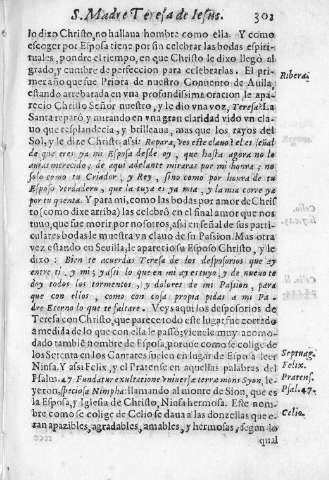 S. Madre Teresa de Iesus. 302
lo dixo Christo, no hallaua hombre como ella. Y como
escoger por Esposa tiene por fin celebrar las bodas espiri-
tuales, pondre el tiempo, en que Christo le dixo llegó al
grado, y cumbre de perfeccion para celebrarlas. El pri-
mer año que fue Priora de nuestro Conuento de Auila,
estando arrebatada en vna profundissima oracion, le apa-
recio Christo Señor nuestro, y le dio vna voz, Teresa? La
Santa reparó y mirando en vna gran claridad vido vn cla-
uo que resplandecia, y brillaua, mas que los rayos del
Sol, y le dize Christo assi: Repara, ves este clauo? es el señal
de que eres ya mi Esposa desde oy, que hasta agora no lo
auias merecido; de aqui adelante miraras por mi honra; no
solo como tu Criador, y Rey, sino como por honra de tu
Esposo verdadero, que la tuya es ya mia, y la mia corre ya
por tu quenta. Y para mi, como las bodas por amor de Chris-
to (como dixe arriba) las celebró en el señal amor que nos
tuuo, que fue morir por nosotros, assi en señal de sus parti-
culares bodas le muestra vn clauo de su Passion. Mas otra
vez estando en Seuilla, le aparecio su Esposo Christo, y le
dixo: Bien te acuerdas Teresa de los desposorios que ay
entre ti, y mi; y assi lo que en mi ay es tuyo, y de nueuo te
doy todos los tormentos, y dolores de mi Passion, para
que con ellos, como con cosa propia pidas a mi Pa-
dre Eterno lo que te faltare. Veys aqui los desposorios de
Teresa con Christo, que parece todo este lugar fue cortado
a medida de lo que con ella le passó; vienele muy acomo-
dado tambiē nombre de Esposa, porque como se colige de
los Setenta en los Cantares suelen en lugar de Esposa leer
Ninfa. Y assi Felix, y el Pratense en aquellas palabras del
Psalm. 47. Fundatur exultatione vniuersæ terræ mons Syon, le-
yeron, speciosa Nimpha: llamando al monte de Sion, que es
la Esposa, y Iglesia de Christo, Ninfa hermosa. Este nom-
bre como se colige de Celio se daua a las donzellas que e-
ran apazibles, agradables, amables, y hermosas, segun lo
qual
Ribera;
Septuag.
Felix.
Pratens.
Psal. 47.
Celio.